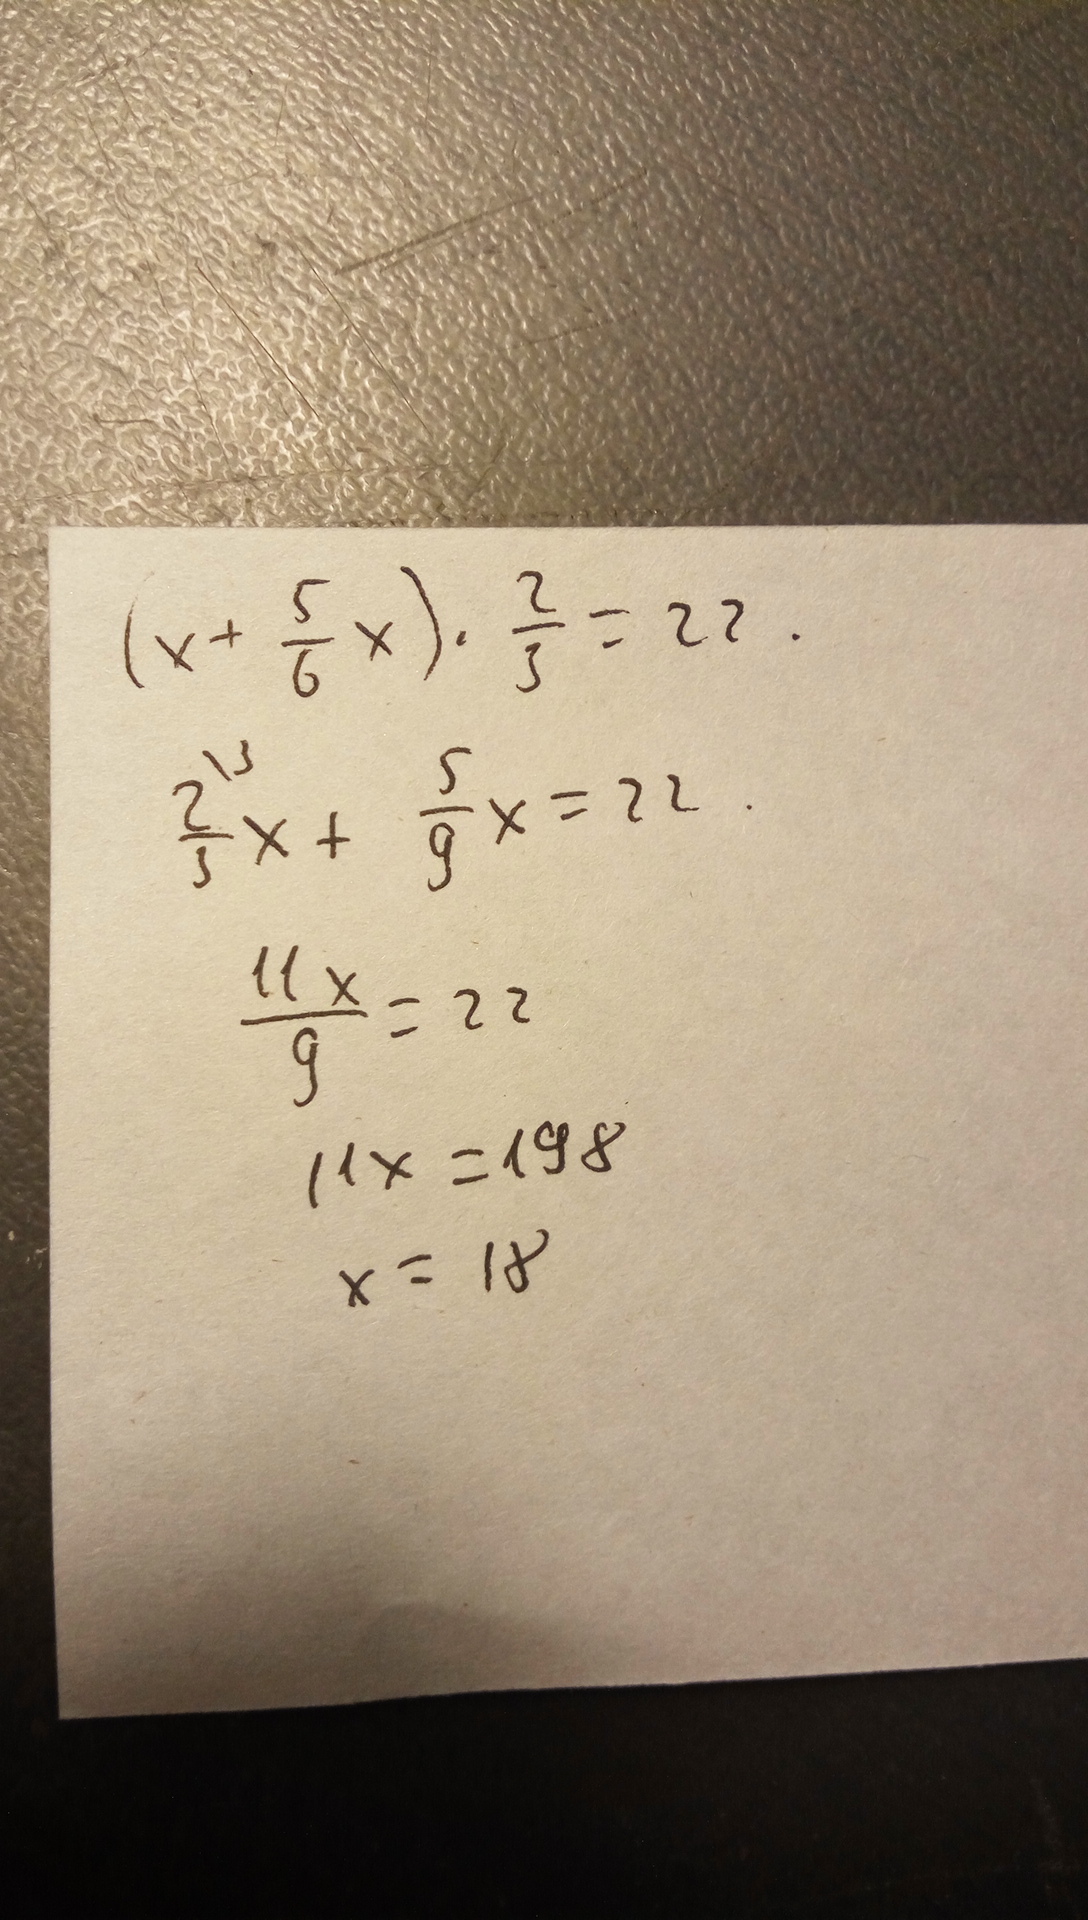 (x + 5/6 x) · 2/3 = 22 .
2\3/3 x + 5/9 x = 22 .
11x/9 = 22
11x = 198
x = 18